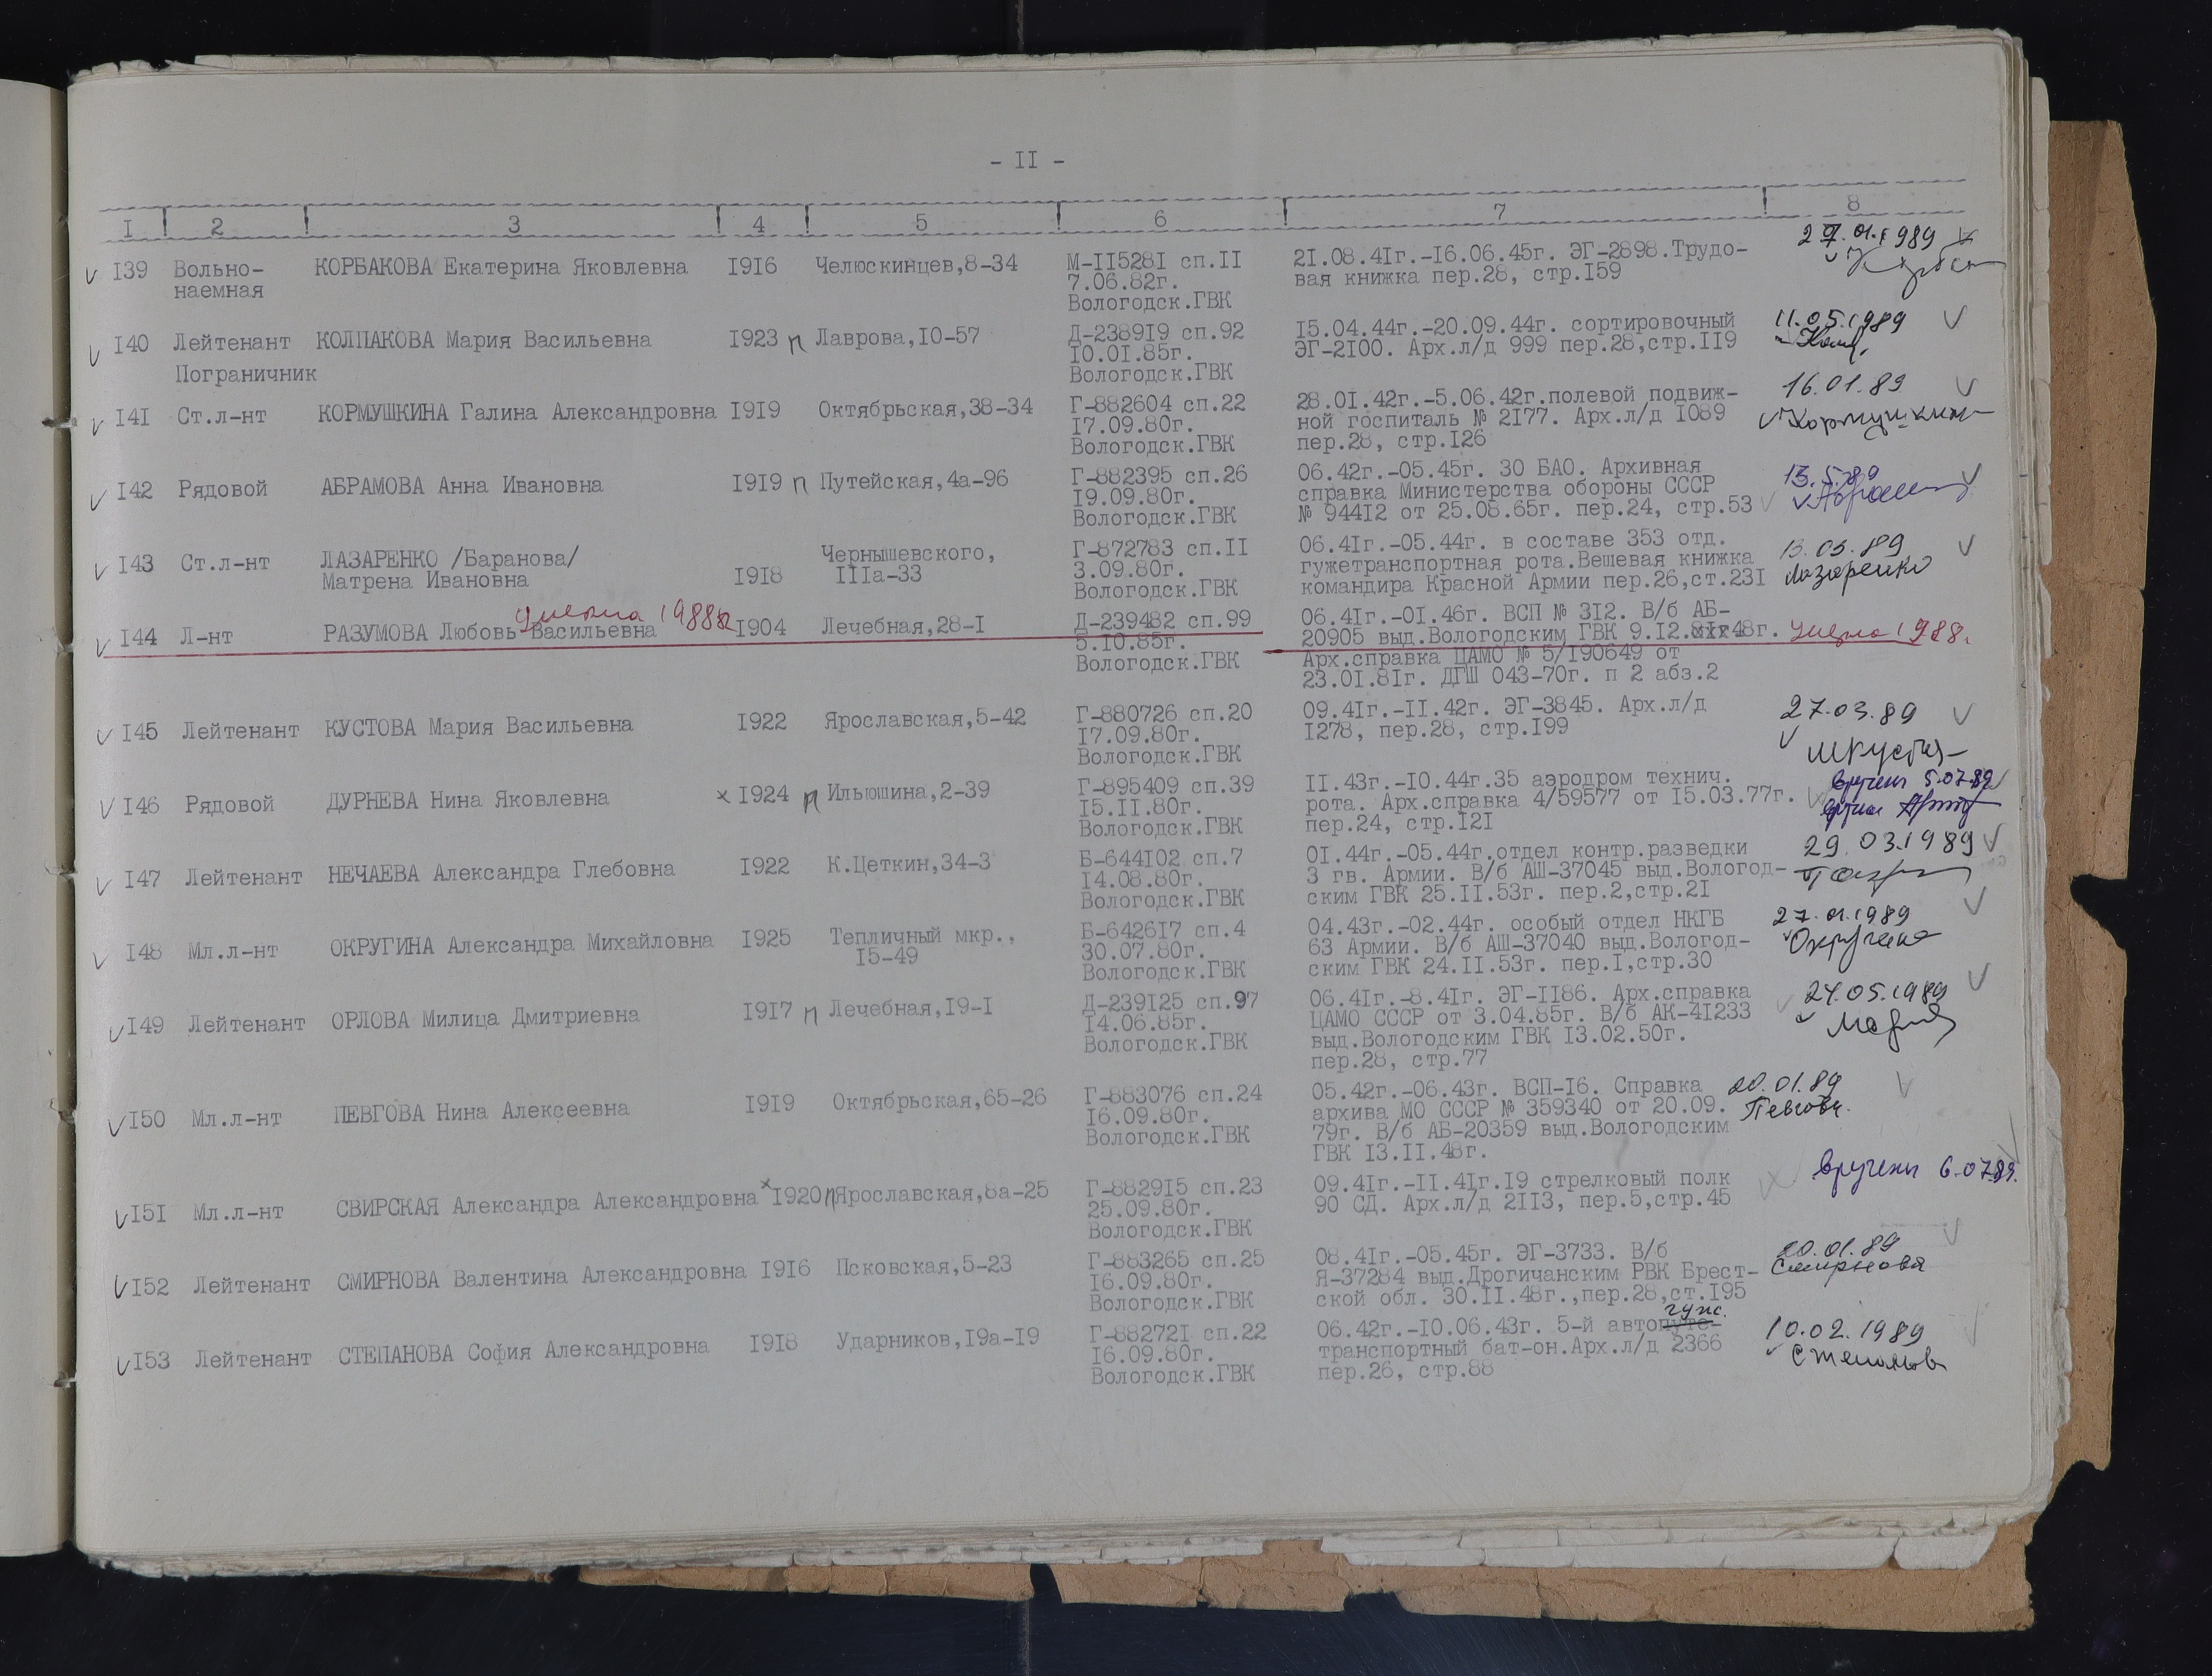 - II -
I 2 3 4 5 6 7 8
I39 Вольно- КОРБАКОВА Екатерина Яковлевна I9I6 Челюскинцев,8-34 М-II528I сп.II 2I.08.4Iг.-I6.06.45г. ЭГ-2898.Трудо- 27.01.1989
наемная 7.06.82г. вая книжка пер.28, стр.I59
Вологодск.ГВК
I40 Лейтенант КОЛПАКОВА Мария Васильевна I923 п Лаврова,I0-57 Д-2389I9 сп.92 I5.04.44г.-20.09.44г. сортировочный 11.05.1989
Пограничник I0.0I.85г. ЭГ-2I00. Арх.л/д 999 пер.28,стр.II9
Вологодск.ГВК
I4I Ст.л-нт КОРМУШКИНА Галина Александровна I9I9 Октябрьская,38-34 Г-882604 сп.22 28.0I.42г.-5.06.42г.полевой подвиж- 16.01.89
I7.09.80г. ной госпиталь № 2I77. Арх.л/д I089 Кормушкина
Вологодск.ГВК пер.28, стр.I26
I42 Рядовой АБРАМОВА Анна Ивановна I9I9 п Путейская,4а-96 Г-882395 сп.26 06.42г.-05.45г. 30 БАО. Архивная 13.5.89
I9.09.80г. справка Министерства обороны СССР
Вологодск.ГВК № 944I2 от 25.08.65г. пер.24, стр.53
I43 Ст.л-нт ЛАЗАРЕНКО /Баранова/ Чернышевского, Г-872783 сп.II 06.4Iг.-05.44г. в составе 353 отд. 13.03.89
Матрена Ивановна I9I8 IIIа-33 3.09.80г. гужетранспортная рота.Вешевая книжка Лазаренко
Вологодск.ГВК командира Красной Армии пер.26,ст.23I
умерла 1988г
I44 Л-нт РАЗУМОВА Любовь Васильевна I904 Лечебная,28-I Д-239482 сп.99 06.4Iг.-0I.46г. ВСП № 3I2. В/б АБ-
5.I0.85г. 20905 выд.Вологодским ГВК 9.I2.48г. умерла 1988г.
Вологодск.ГВК Арх.справка ЦАМО № 5/I90649 от
23.0I.8Iг. ДГШ 043-70г. п 2 абз.2
I45 Лейтенант КУСТОВА Мария Васильевна I922 Ярославская,5-42 Г-880726 сп.20 09.4Iг.-II.42г. ЭГ-3845. Арх.л/д 27.03.89
I7.09.80г. I278, пер.28, стр.I99
Вологодск.ГВК
I46 Рядовой ДУРНЕВА Нина Яковлевна х I924 п Ильюшина,2-39 Г-895409 сп.39 II.43г.-I0.44г.35 аэродром технич. вручен 5.07.89
I5.II.80г. рота. Арх.справка 4/59577 от I5.03.77г.
Вологодск.ГВК пер.24, стр.I2I
I47 Лейтенант НЕЧАЕВА Александра Глебовна I922 К.Цеткин,34-3 Б-644I02 сп.7 0I.44г.-05.44г.отдел контр.разведки 29.03.1989
I4.08.80г. 3 гв. Армии. В/б АШ-37045 выд.Вологод-
Вологодск.ГВК ским ГВК 25.II.53г. пер.2,стр.2I
I48 Мл.л-нт ОКРУГИНА Александра Михайловна I925 Тепличный мкр., Б-6426I7 сп.4 04.43г.-02.44г. особый отдел НКГБ 27.01.1989
I5-49 30.07.80г. 63 Армии. В/б АШ-37040 выд.Вологод- Округина
Вологодск.ГВК ским ГВК 24.II.53г. пер.I,стр.30
I49 Лейтенант ОРЛОВА Милица Дмитриевна I9I7 п Лечебная,I9-I Д-239I25 сп.97 06.4Iг.-8.4Iг. ЭГ-II86. Арх.справка 24.05.1989
I4.06.85г. ЦАМО СССР от 3.04.85г. В/б АК-4I233
Вологодск.ГВК выд.Вологодским ГВК I3.02.50г.
пер.28, стр.77
I50 Мл.л-нт ПЕВГОВА Нина Алексеевна I9I9 Октябрьская,65-26 Г-883076 сп.24 05.42г.-06.43г. ВСП-I6. Справка 20.01.89
I6.09.80г. архива МО СССР № 359340 от 20.09. Певгова
Вологодск.ГВК 79г. В/б АБ-20359 выд.Вологодским
ГВК I3.II.48г.
I5I Мл.л-нт СВИРСКАЯ Александра Александровна х I920 п Ярославская,8а-25 Г-8829I5 сп.23 09.4Iг.-II.4Iг.I9 стрелковый полк вручен 6.07.89.
25.09.80г. 90 СД. Арх.л/д 2II3, пер.5,стр.45
Вологодск.ГВК
I52 Лейтенант СМИРНОВА Валентина Александровна I9I6 Псковская,5-23 Г-883265 сп.25 08.4Iг.-05.45г. ЭГ-3733. В/б 20.01.89
I6.09.80г. Я-37284 выд.Дрогичанским РВК Брест- Смирнова
Вологодск.ГВК ской обл. 30.II.48г.,пер.28,ст.I95
гуж.
I53 Лейтенант СТЕПАНОВА София Александровна I9I8 Ударников,I9а-I9 Г-88272I сп.22 06.42г.-I0.06.43г. 5-й автопуте- 10.02.1989
I6.09.80г. транспортный бат-он.Арх.л/д 2366 Степанова
Вологодск.ГВК пер.26, стр.88